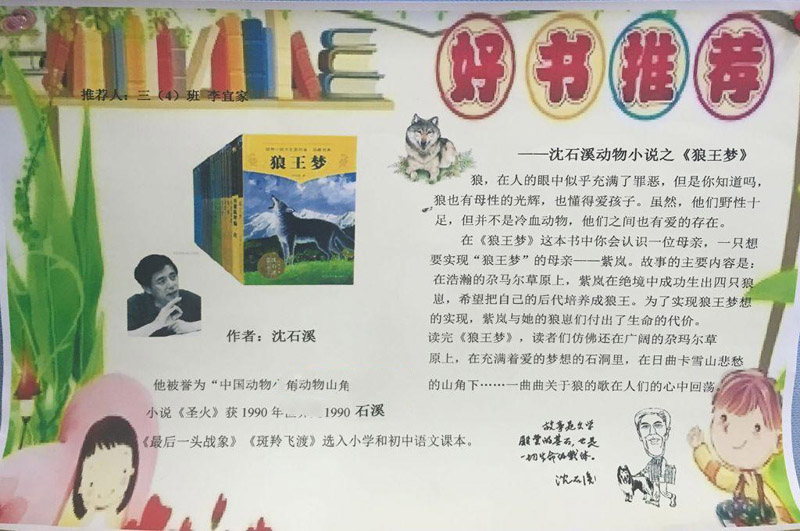 好书推荐
推荐人：三（4）班 李宜家
狼王梦
作者：沈石溪
他被誉为“中国动物
角动物山角
小说《圣火》获 1990 年
1990 石溪
《最后一头战象》《斑羚飞渡》选入小学和初中语文课本。
——沈石溪动物小说之《狼王梦》
狼，在人的眼中似乎充满了罪恶，但是你知道吗，
狼也有母性的光辉，也懂得爱孩子。虽然，他们野性十
足，但并不是冷血动物，他们之间也有爱的存在。
在《狼王梦》这本书中你会认识一位母亲，一只想
要实现“狼王梦”的母亲——紫岚。故事的主要内容是：
在浩瀚的尕马尔草原上，紫岚在绝境中成功生出四只狼
崽，希望把自己的后代培养成狼王。为了实现狼王梦想
的实现，紫岚与她的狼崽们付出了生命的代价。
读完《狼王梦》，读者们仿佛还在广阔的尕玛尔草
原上，在充满着爱的梦想的石洞里，在日曲卡雪山悲愁
的山角下……一曲曲关于狼的歌在人们的心中回荡。
故事是文学
殿堂的基石，也是
一切生命的载体。
沈石溪